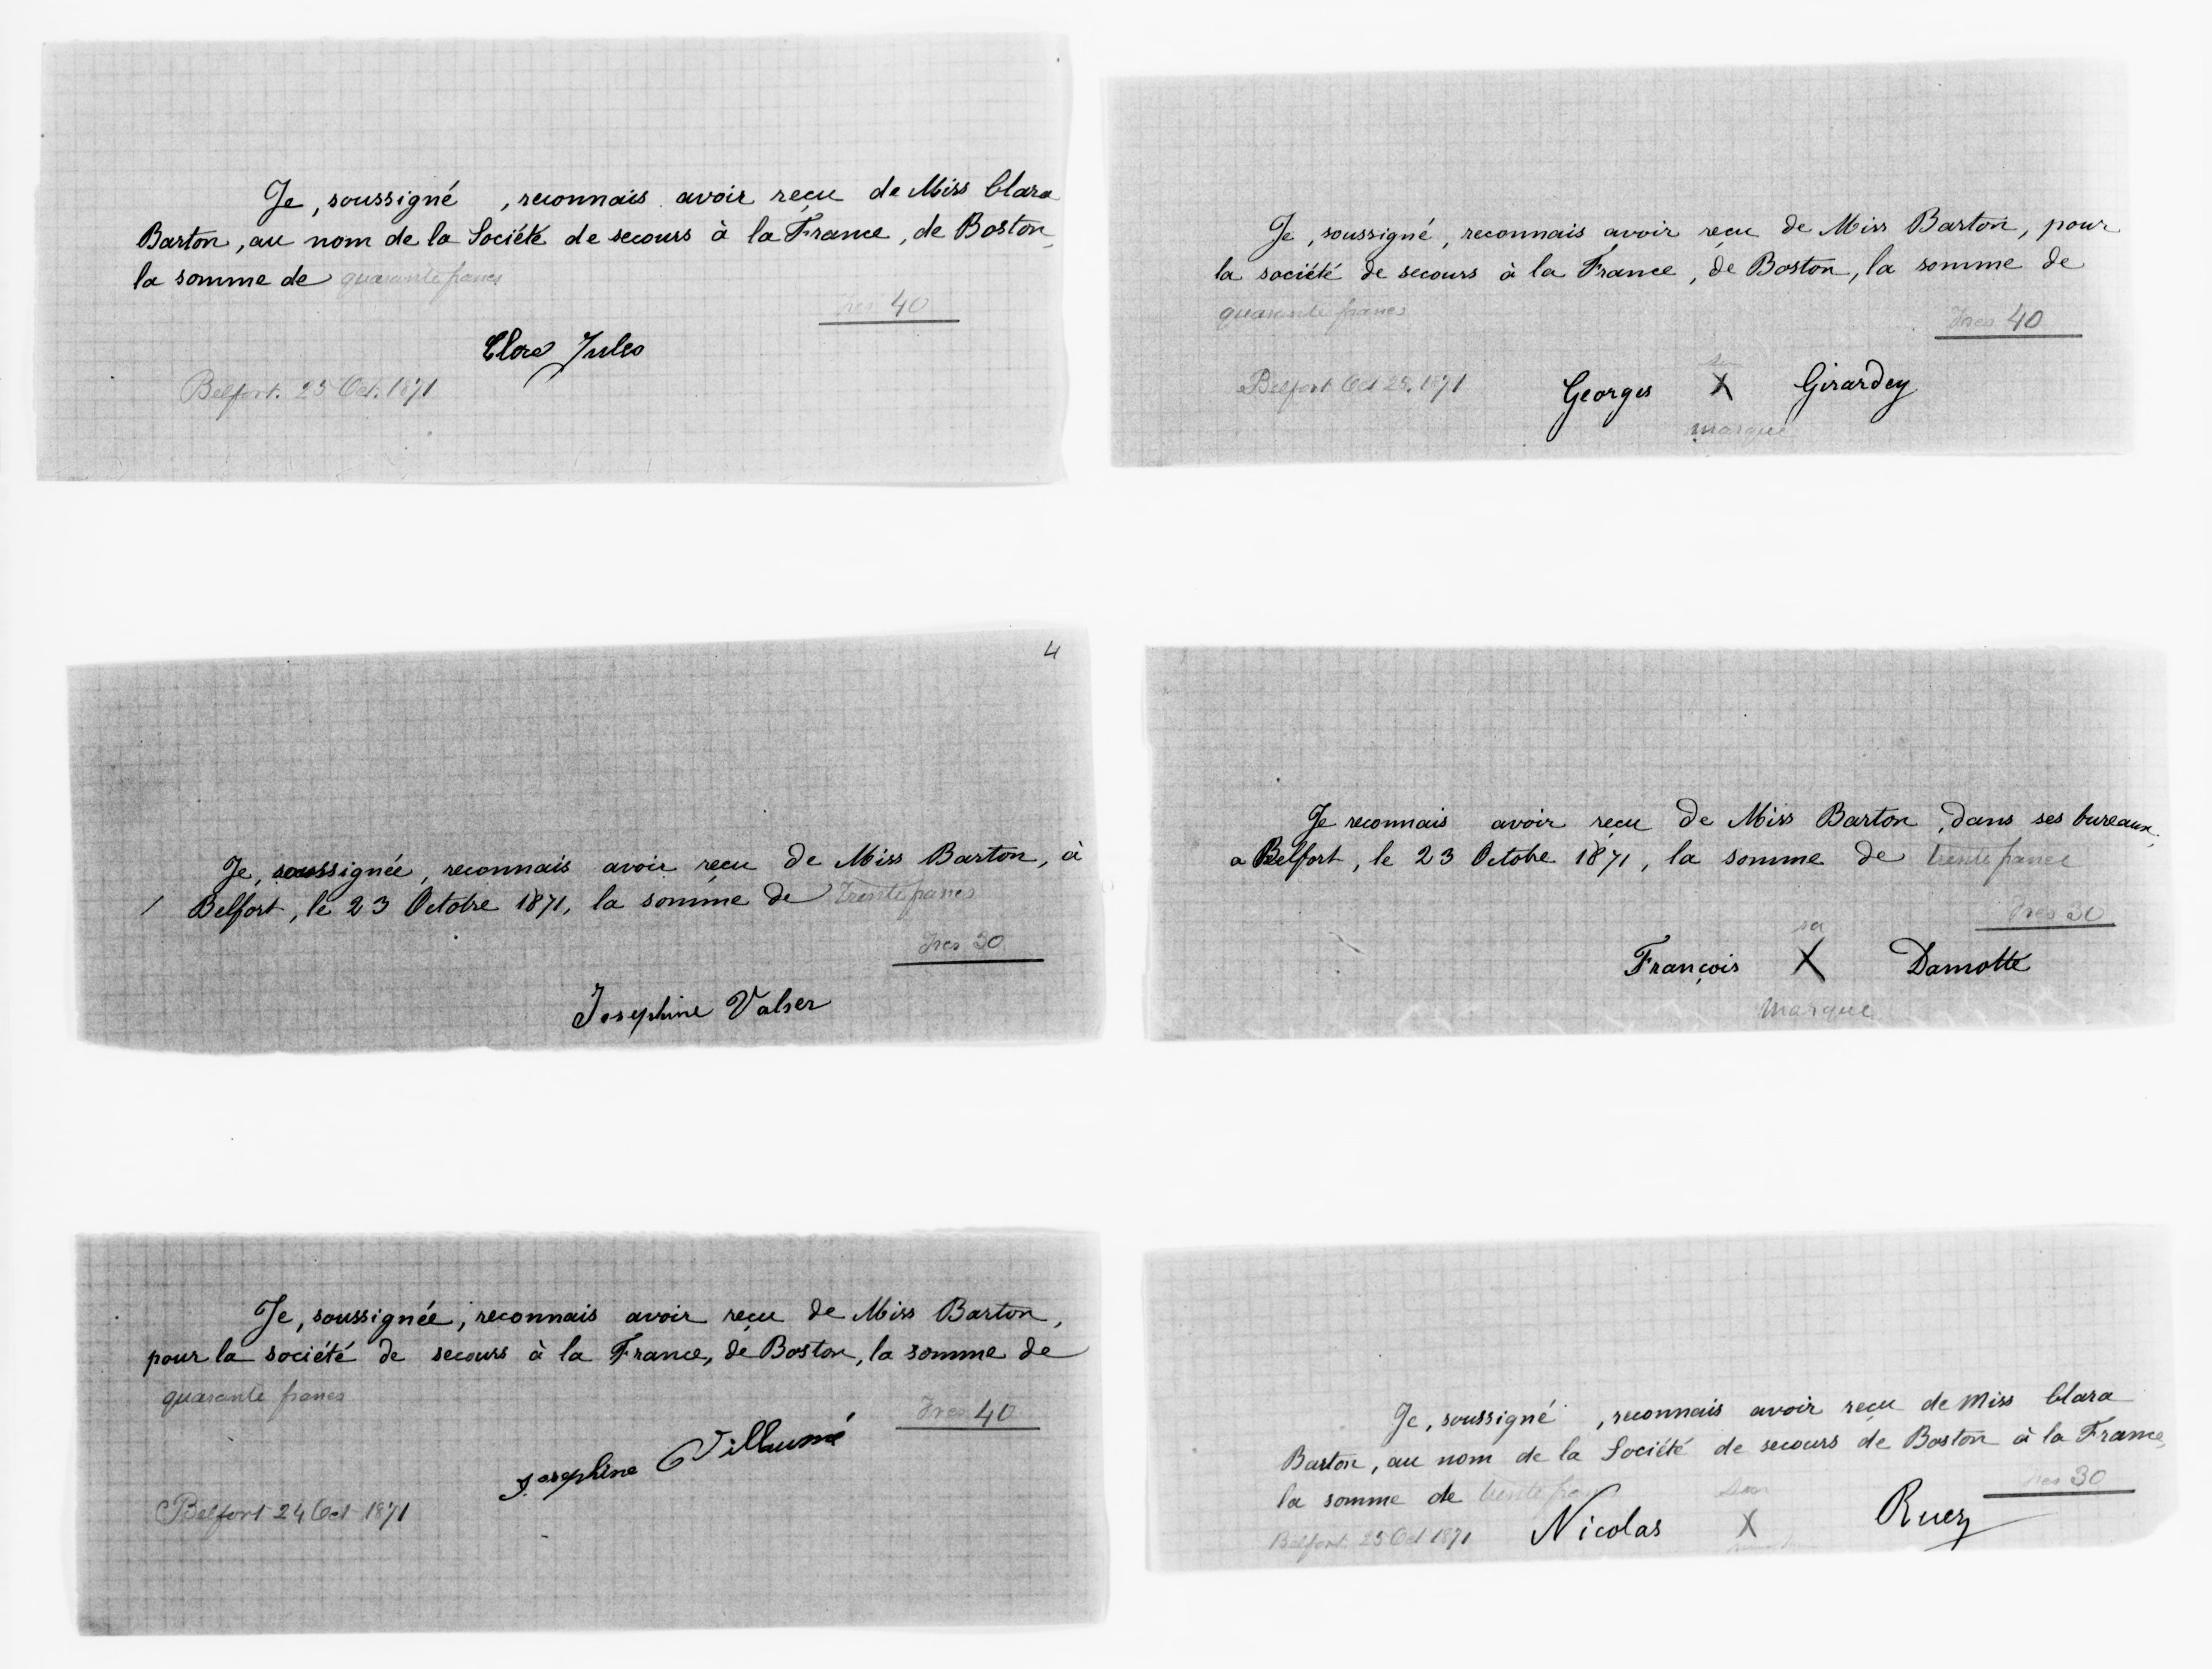 Je, soussigné , reconnais avoir reçu de Miss Clara
Barton, au nom de la Société de secours à la France, de Boston,
la somme de quarante francs
frcs 40
Jules
Belfort. 25 Oct. 1871
Je, soussigné, reconnais avoir reçu de Miss Barton, pour
la société de secours à la France, de Boston, la somme de
quarante francs
Frcs 40
sa
Belfort Oct 25, 1871 Georges X Girardey
marque
4
Je, soussignée, reconnais avoir reçu de Miss Barton, à
/ Belfort, le 23 Octobre 1871, la somme de trente francs
Frcs 30
Josephine Valser
Je reconnais avoir reçu de Miss Barton, dans ses bureaux,
a Belfort, le 23 Octobre 1871, la somme de trente francs
Frcs 30
sa
François X Damotte
marque
Je, soussignée, reconnais avoir reçu de Miss Barton,
pour la société de secours à la France, de Boston, la somme de
quarante francs
Frcs 40
Josephine Villumé
Belfort 24 Oct 1871
Je, soussigné , reconnais avoir reçu de Miss Clara
Barton, au nom de la Société de secours de Boston à la France,
frcs 30
la somme de trente francs
Belfort. 25 Oct 1871 Nicolas X Ruez